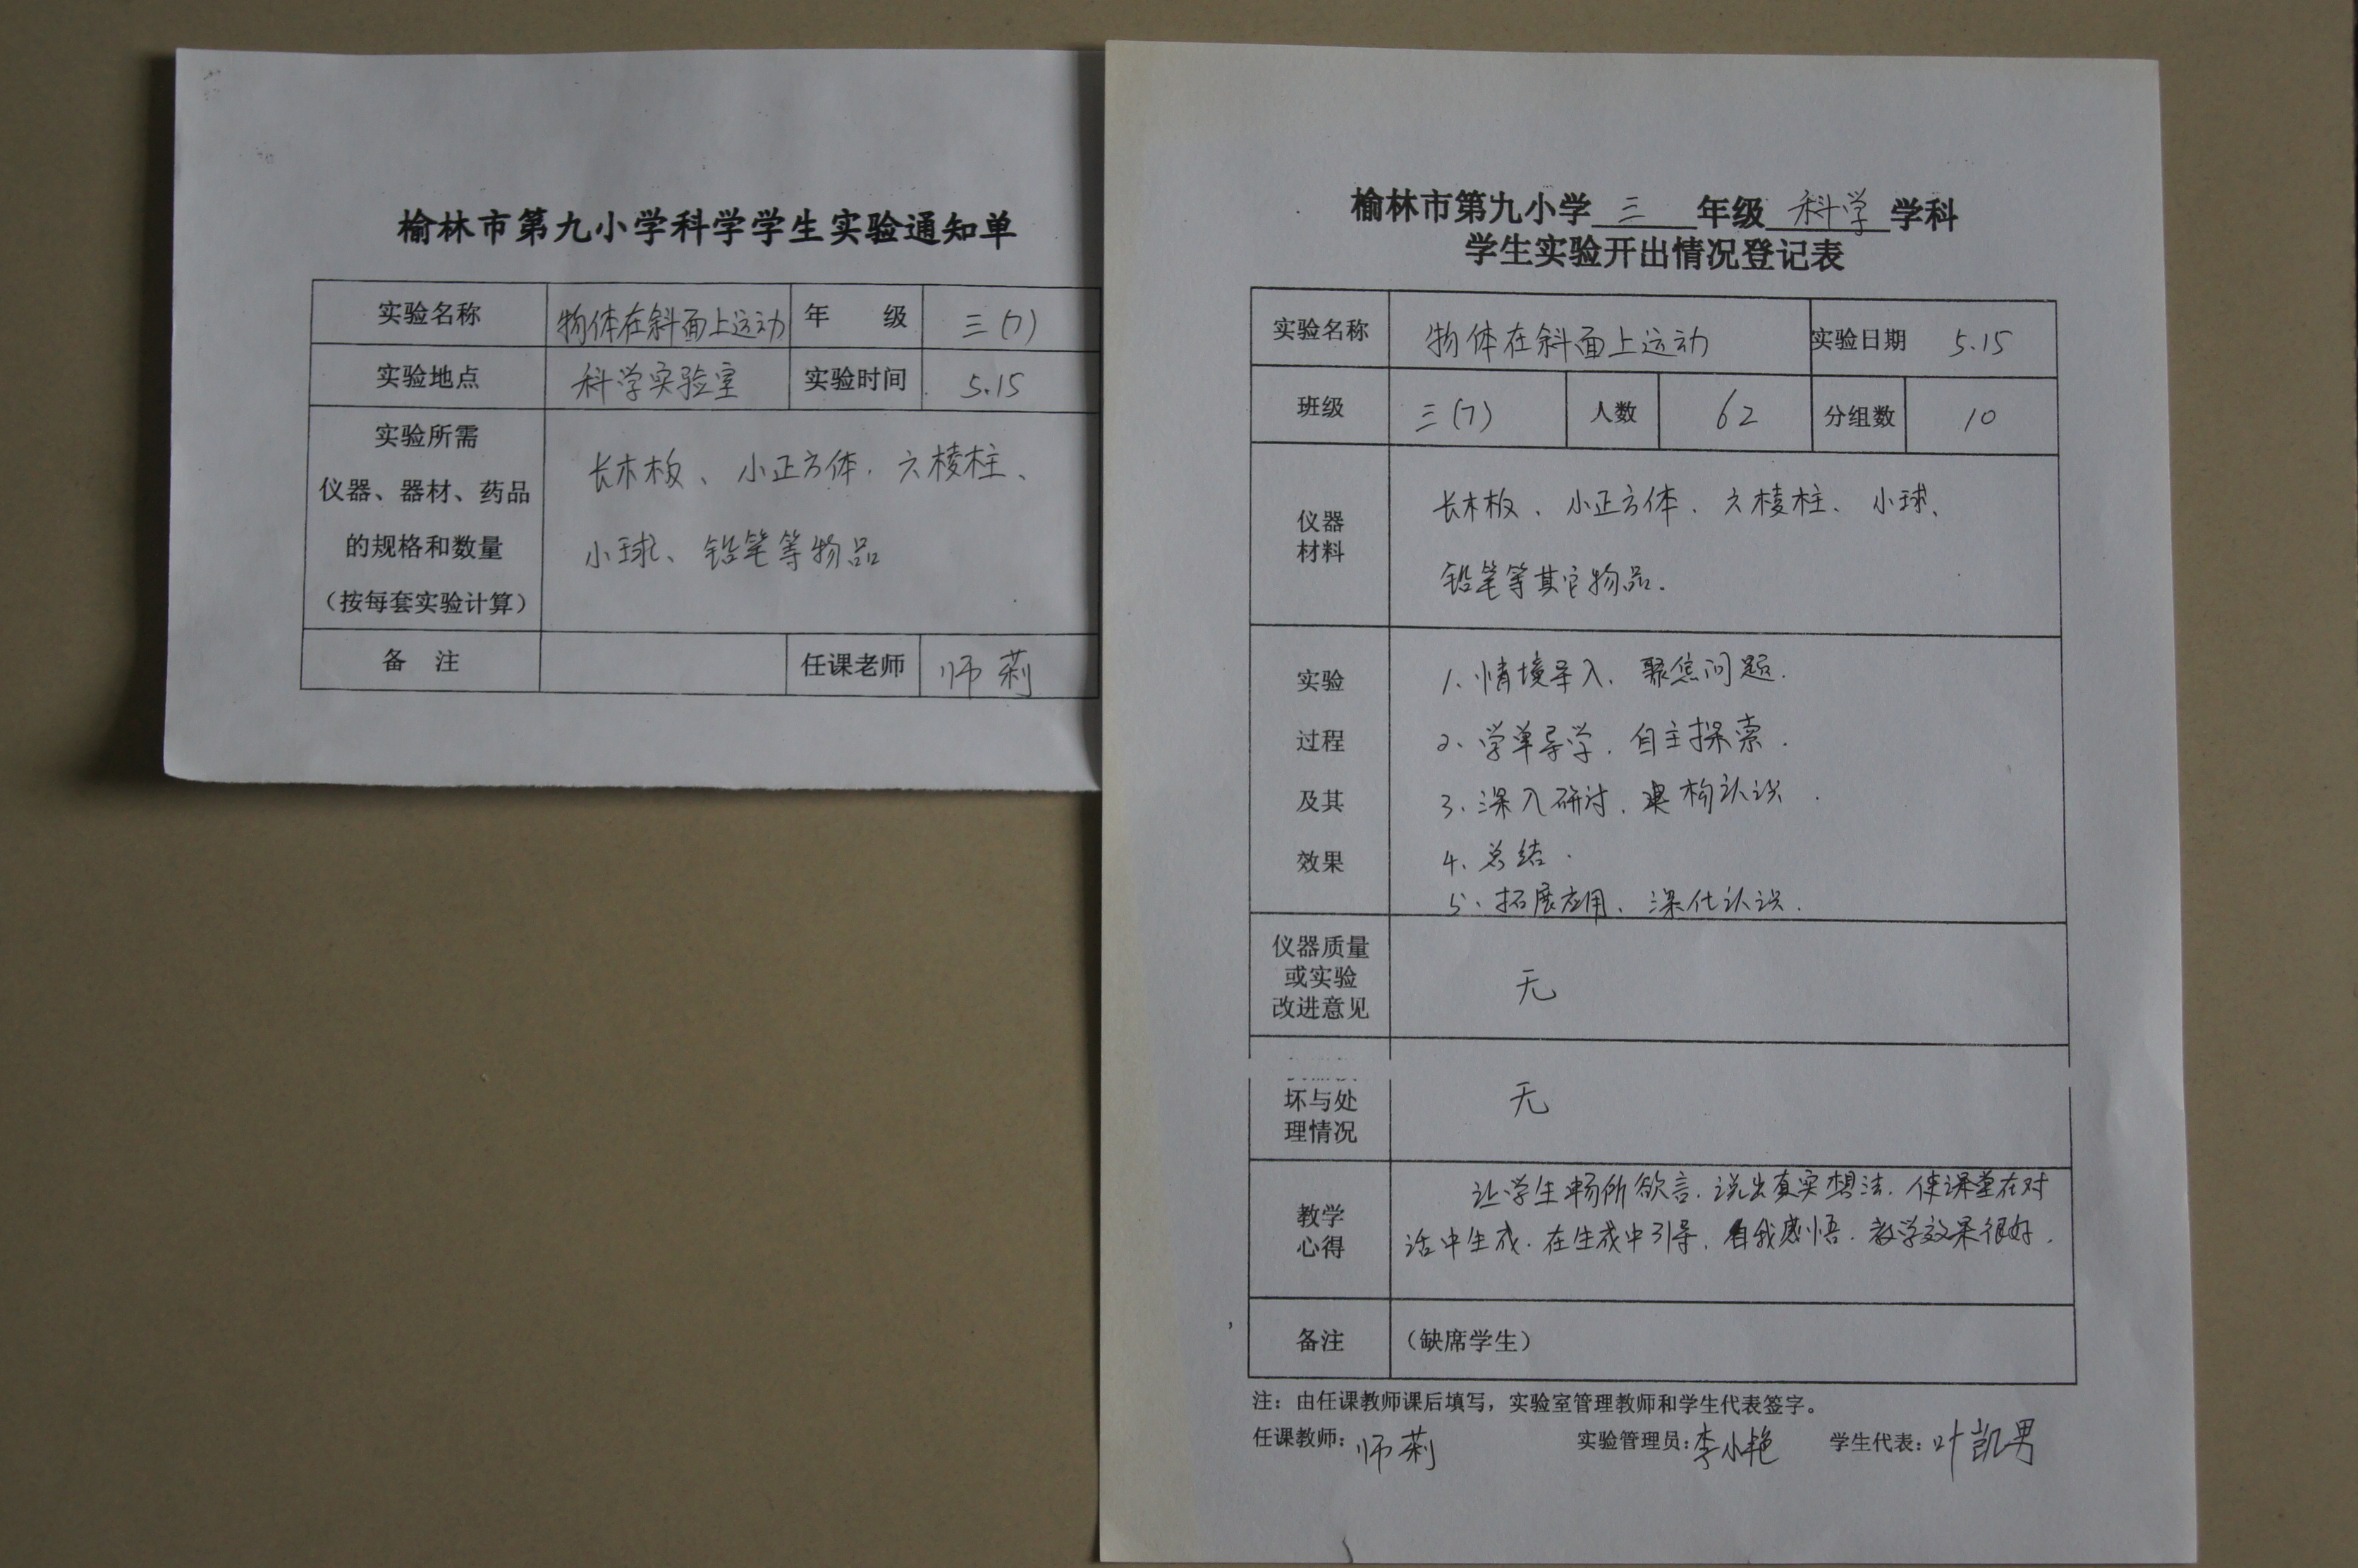 榆林市第九小学科学学生实验通知单
实验名称 物体在斜面上运动 年 级 三(7)
实验地点 科学实验室 实验时间 5.15
实验所需
仪器、器材、药品
的规格和数量
(按每套实验计算)
长木板、小正方体、六棱柱、
小球、铅笔等物品
备 注 任课老师 师莉
榆林市第九小学 三 年级 科学 学科
学生实验开出情况登记表
实验名称 物体在斜面上运动 实验日期 5.15
班级 三(7) 人数 62 分组数 10
仪器
材料
长木板、小正方体、六棱柱、小球、
铅笔等其它物品.
实验
过程
及其
效果
1、情境导入、聚焦问题.
2、学单导学,自主探索.
3、深入研讨,建构认识.
4、总结.
5、拓展应用、深化认识.
仪器质量
或实验
改进意见
无
坏与处
理情况
无
教学
心得
让学生畅所欲言.说出真实想法.使课堂在对
话中生成.在生成中引导,自我感悟.教学效果很好.
备注 (缺席学生)
注:由任课教师课后填写,实验室管理教师和学生代表签字。
任课教师:师莉 实验管理员:李小艳 学生代表:叶凯男